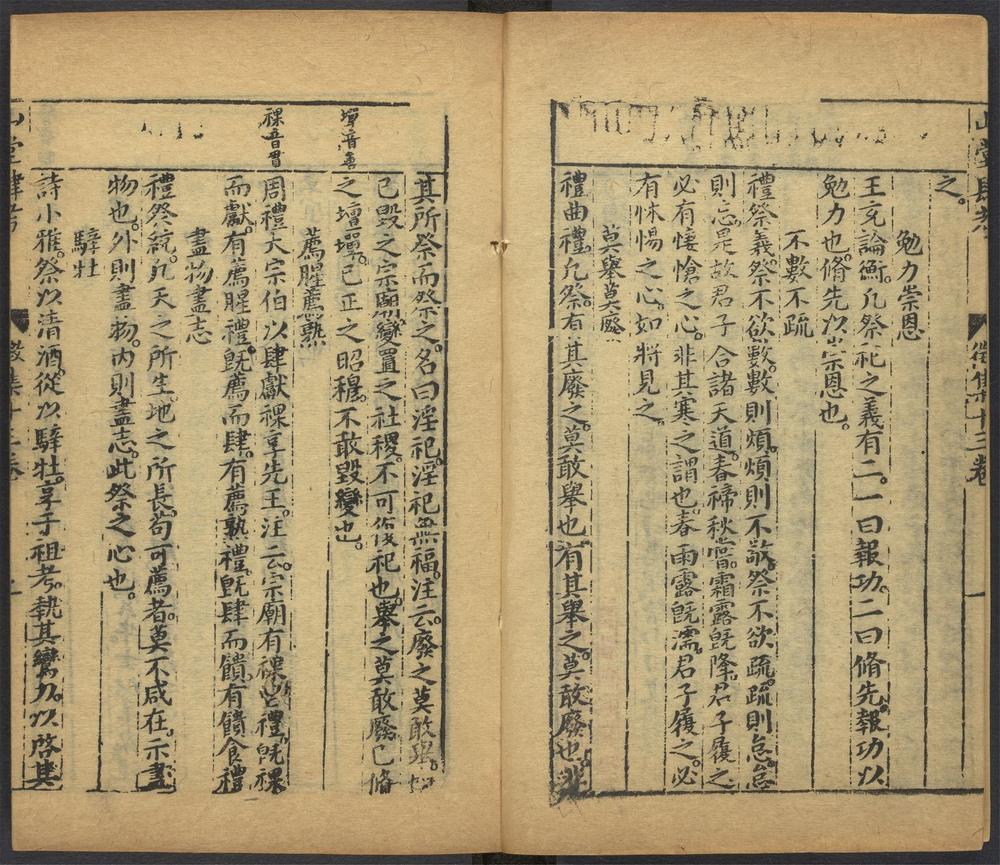 之。
勉力崇恩
王充論衡。凡祭祀之義有二。一曰報功。二曰脩先。報功以
勉力也。脩先以崇恩也。
不數不疏
禮祭義。祭不欲數。數則煩。煩則不敬。祭不欲疏。疏則怠。怠
則忘。是故君子合諸天道。春禘秋嘗。霜露旣降。君子履之
必有悽愴之心。非其寒之謂也。春雨露旣濡。君子履之。必
有怵惕之心。如將見之。
莫舉莫廢
禮曲禮。凡祭。有其廢之。莫敢舉也。有其舉之。莫敢廢也。非
徵集十三卷
其所祭而祭之。名曰淫祀。淫祀無福。注云。廢之莫敢舉。
已毀之宗廟。變置之社稷。不可復祀也。舉之莫敢廢。已脩
之壇墠。已正之昭穆。不敢毀變也。
墠音善
薦腥薦熟
周禮大宗伯以肆獻祼享先王。注云。宗廟有祼鬯禮。旣祼
祼音貫
而獻。有薦腥禮。旣薦而肆。有薦熟禮。旣肆而饋。有饋食禮
盡物盡志
禮祭統。凡天之所生。地之所長。苟可薦者。莫不咸在。示盡
物也。外則盡物。內則盡志。此祭之心也。
騂牡
詩小雅。祭以清酒。從以騂牡。享于祖考。執其鸞刀。以啓其